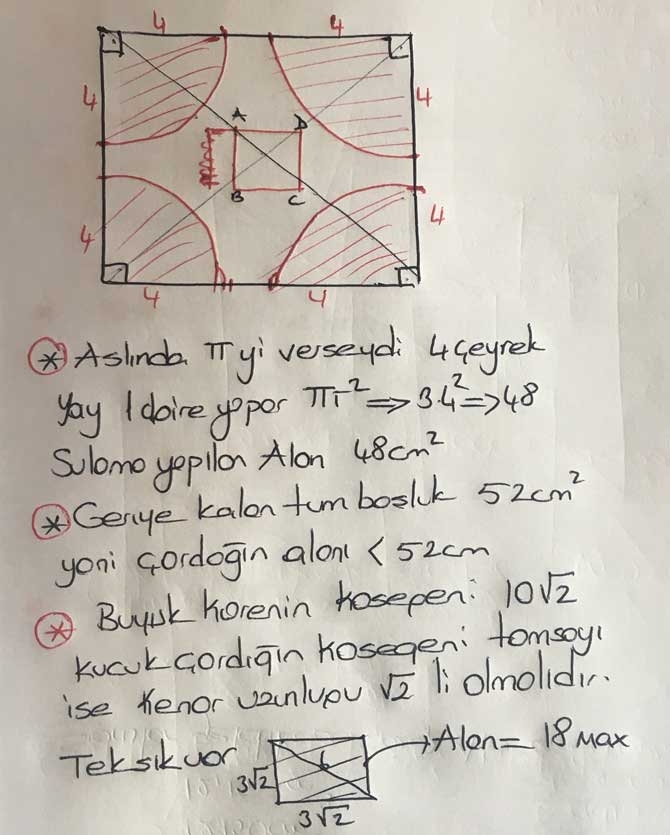 4 4
4 4
A D
B C
4 4
4 4
* Aslında π yi verseydi 4 çeyrek
yay 1 daire yapar πr² ⇒ 3 4² ⇒ 48
Sulama yapılan Alan 48cm²
* Geriye kalan tüm boşluk 52cm²
yani çardağın alanı < 52cm
* Büyük Karenin köşegeni 10√2
küçük çardığın köşegeni tamsayı
ise Kenar uzunluğu √2 li olmalıdır.
Tek şık var 6 → Alan = 18 max
3√2
3√2